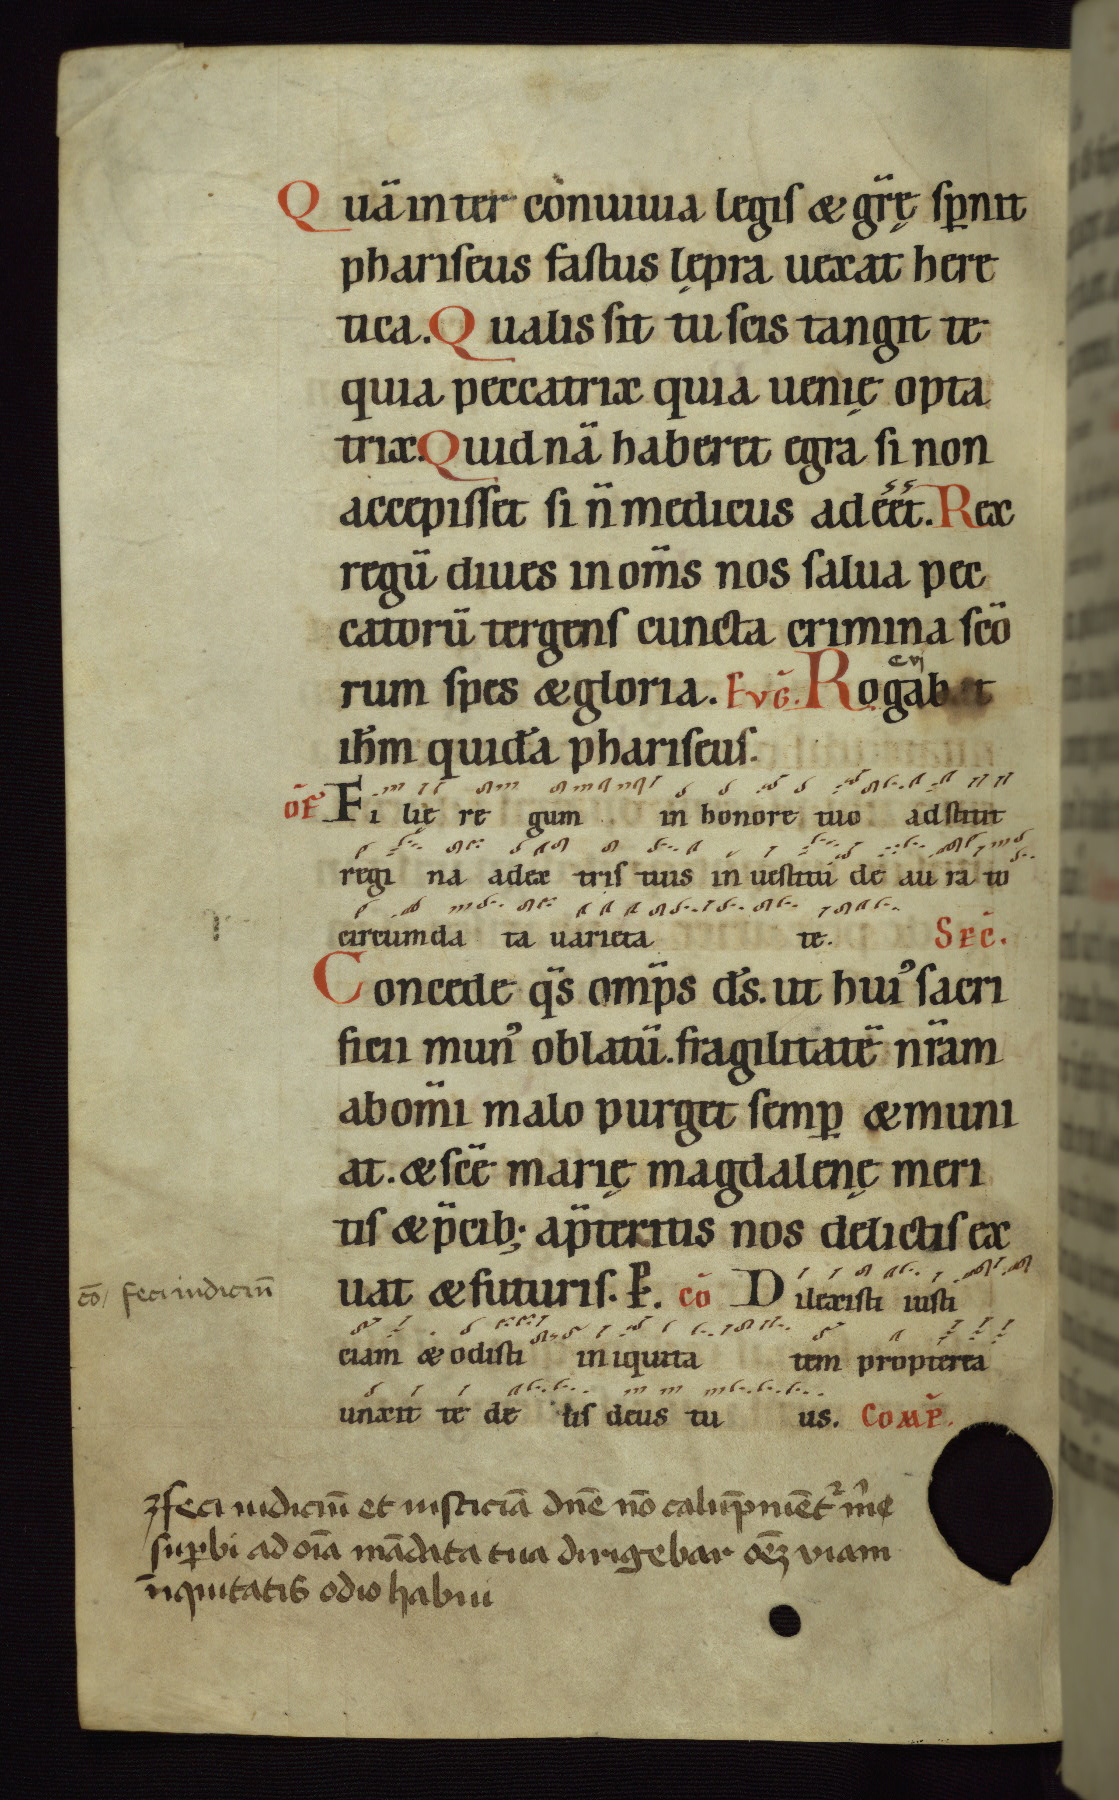 Quā inter conuiuia legis & gr̄ę sp̄nit
phariseus fastus lępra uexat here
tica. Qualis sit tu scis tangit te
quia peccatrix quia uenię opta
trix. Quid nā haberet egra si non
accepisset si n̄ medicus adeēt. Rex
regū diues in om̄s nos salua pec
catorū tergens cuncta crimina scō
rum spes & gloria. Evḡ. Rogabat
ih̄m quidā phariseus.
of̄ Filię regum in honore tuo adstitit
regina adextris tuis in uestitu deaurato
circumdata uarietate. Sec̄.
Concede qs̄ omp̄s ds̄. ut hui⁹ sacri
ficii mun⁹ oblatū. fragilitatē nr̄am
ab om̄i malo purget semp̄ & muni
at. & scē marię magdalenę meri
tis & p̄cib; a p̄teritis nos delictis ex
uat & futuris. P. cō Dilexisti iusti
cō feci iudiciū
ciam & odisti iniquitatem propterea
unxit te deus deus tuus. Comp̄.
feci iudiciū et iusticiā dn̄e nō calūpniēt² me
sup̄bi ad oīa mādata tua dirigebar oēʒ viam
iniquitatis odio habui